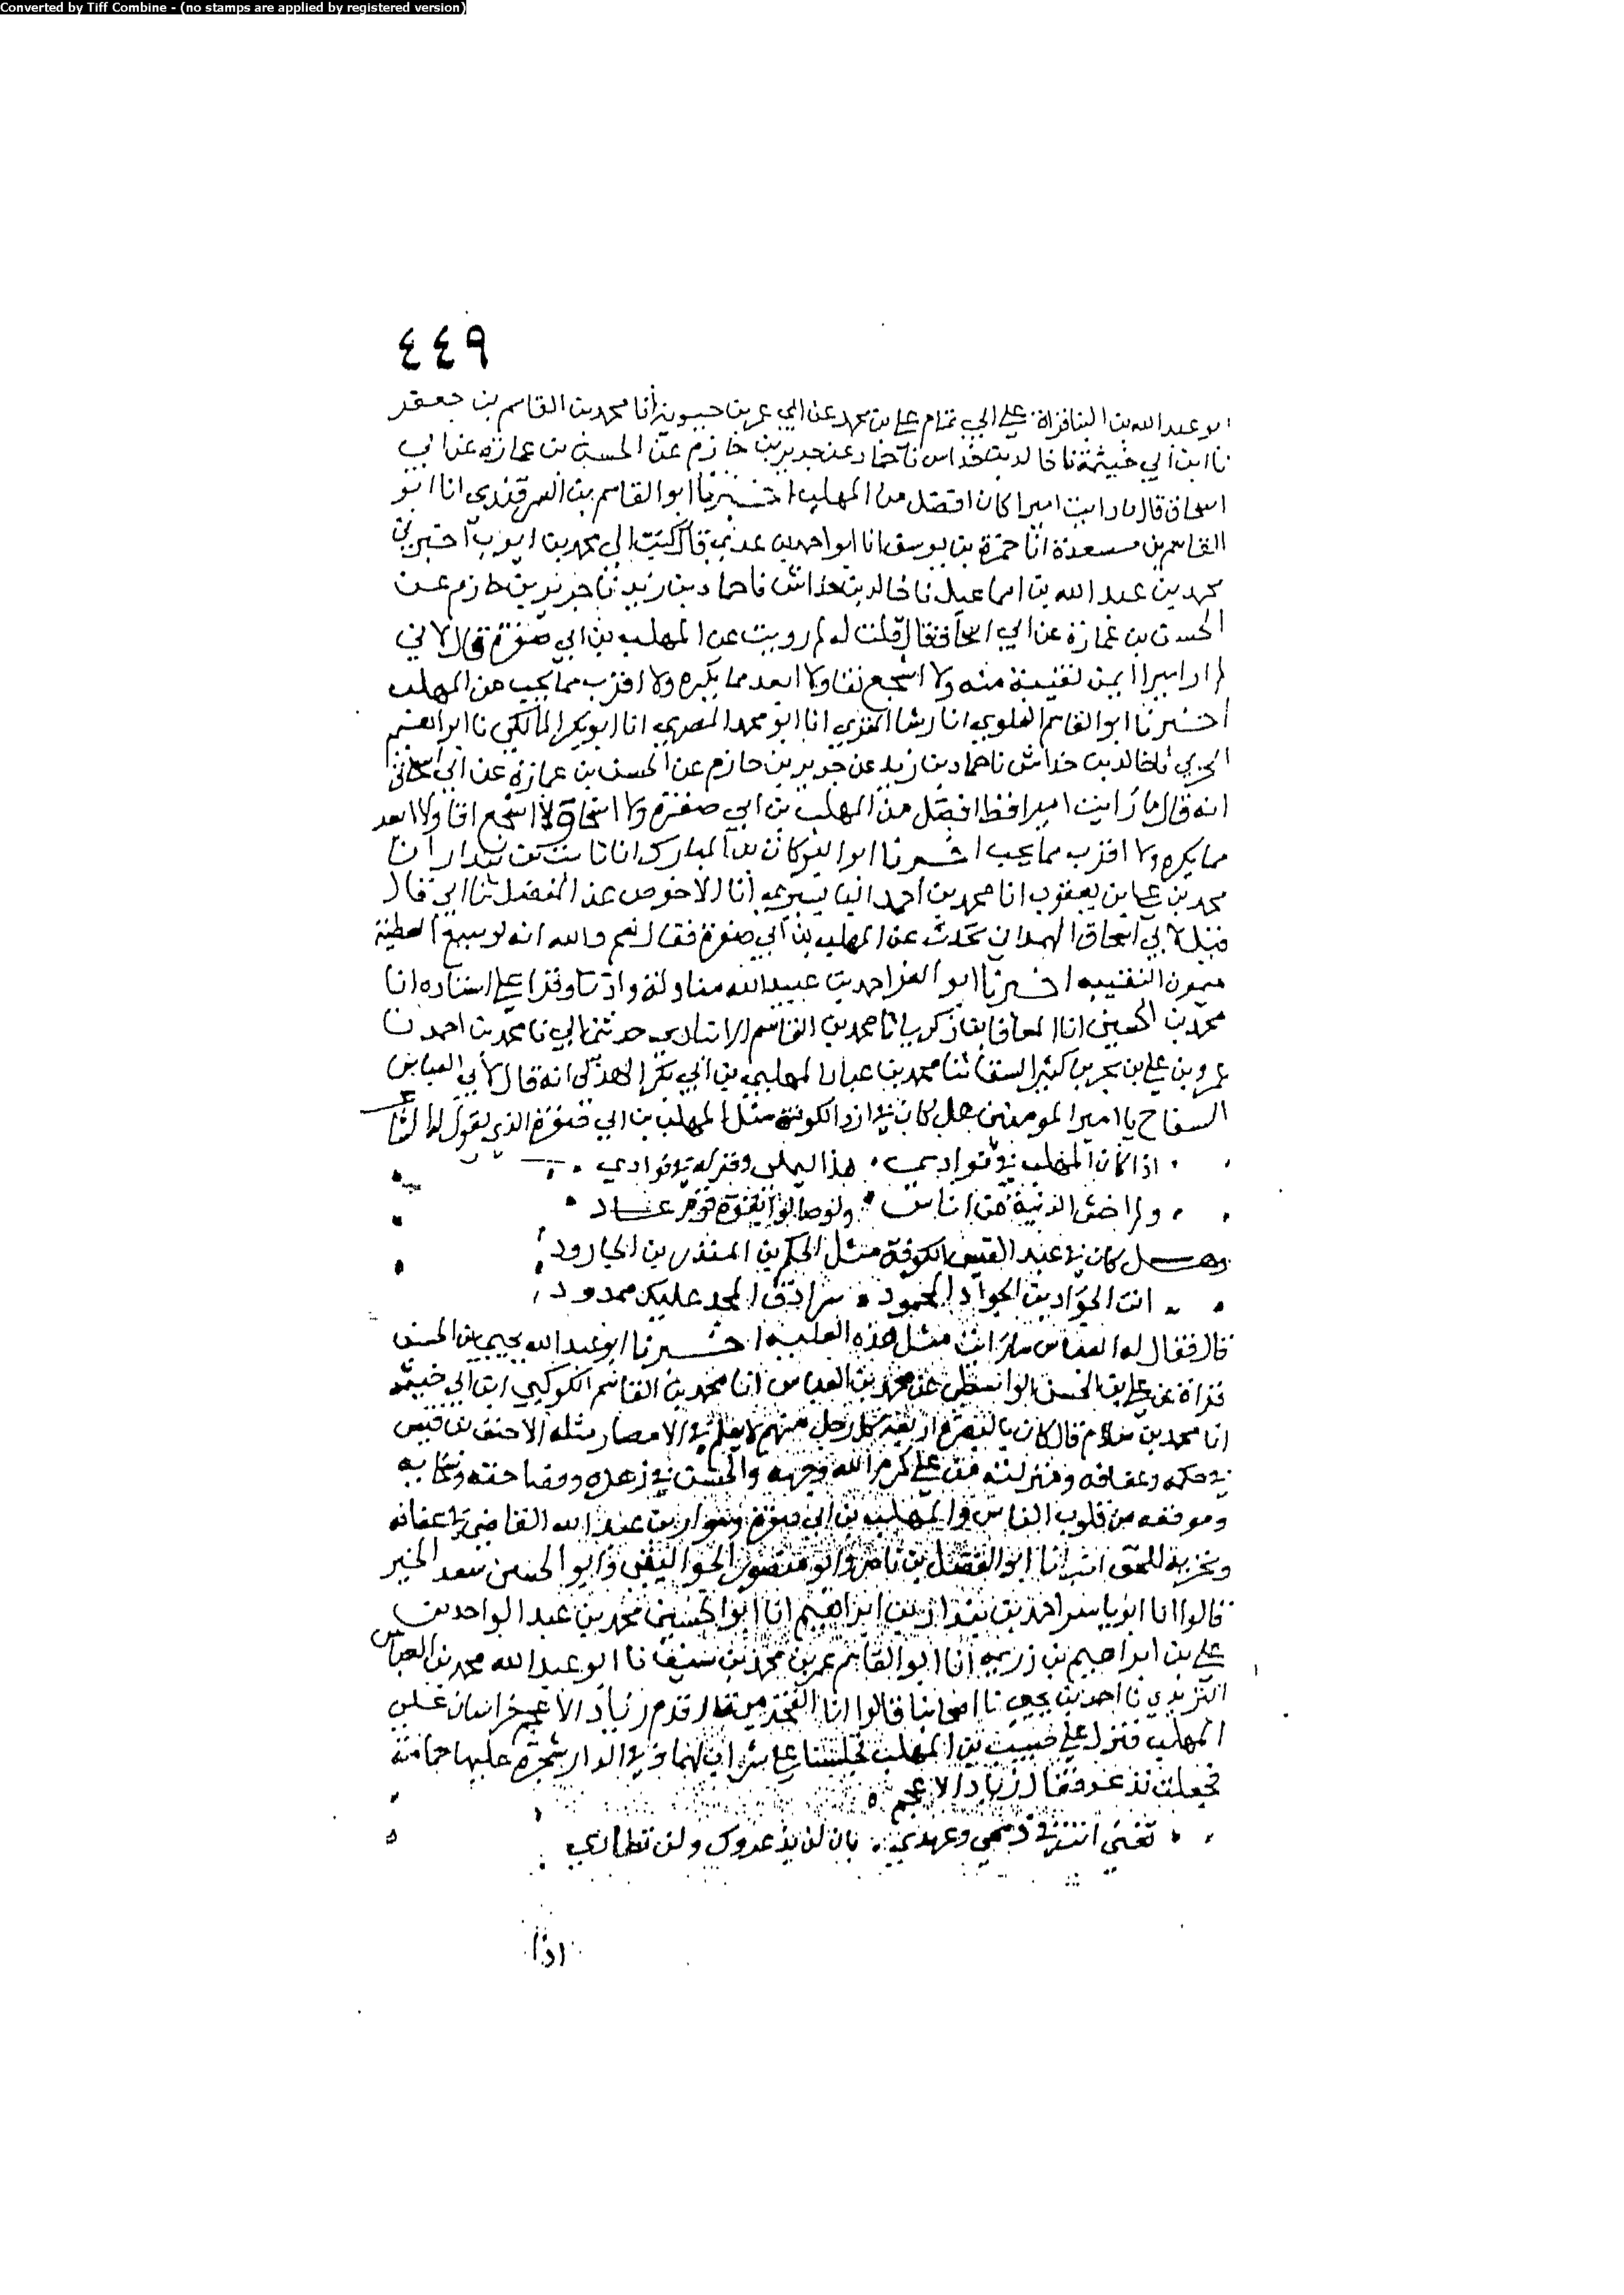 Converted by Tiff Combine - (no stamps are applied by registered version)
٤٤٩
ابو عبد الله بن البنا قراة على ابي تمام علي بن محمد عن ابي عمر بن حيويه انا محمد بن القاسم بن جعفر
نا ابن ابي خيثمة نا خالد بن خداش نا حماد عن جرير بن حازم عن الحسن بن عمارة عن ابي
اسحاق قال ما رايت اميرا كان افضل من المهلب اخبرنا ابو القاسم بن السمرقندي انا ابو
القاسم بن مسعدة انا حمزة بن يوسف انا ابو احمد بن عدي قال كتب الي محمد بن ايوب اخبرني
محمد بن عبد الله بن اسماعيل نا خالد بن خداش نا حماد بن زيد نا جرير بن حازم عن
الحسن بن عمارة عن ابي اسحاق فقال قلت له لم رويت عن المهلب بن ابي صفرة قال لاني
لم ار اميرا ايمن نقيبة منه ولا اشجع لقا ولا ابعد مما يكره ولا اقرب مما يحب من المهلب
اخبرنا ابو القاسم العلوي انا رشا المقري انا ابو محمد المصري انا ابو بكر المالكي نا ابراهيم
الحربي نا خالد بن خداش نا حماد بن زيد عن جرير بن حازم عن الحسن بن عمارة عن ابي اسحاق
انه قال ما رايت اميرا قط افضل من المهلب بن ابي صفرة ولا اسخا ولا اشجع لقا ولا ابعد
مما يكره ولا اقرب مما يحب اخبرنا ابو البركات بن المبارك انا ثابت بن بندار انا
محمد بن علي بن يعقوب انا محمد بن احمد البابسيري انا الاحوص بن المفضل نا ابي قال
قيل لابي اسحاق الهمداني تحدث عن المهلب بن ابي صفرة فقال نعم والله انه لوسيع العطية
ميمون النقيبه اخبرنا ابو العز احمد بن عبيد الله مناولة واذنا وقرا علي اسناده انا
محمد بن الحسين انا المعافا بن زكريا نا محمد بن القاسم الانباري حدثني ابي نا محمد بن احمد نا
عمرو بن علي بن بحر بن كنيز السقا نا محمد بن عباد المهلبي بن ابي بكر الهذلي انه قال لابي العباس
السفاح يا امير المومنين هل كان في ازد الكوفة مثل المهلب بن ابي صفرة الذي يقول له الشاعر
اذا كان المهلب في سواد يمي هذا ليلي وقر له فوادي
ولم اخش الدنية من اناس ولو صالوا بقوة قوم عاد
وهل كان في عبد القيس بالكوفة مثل الحكم بن المنذر بن الجارود
انت الجواد بن الجواد المحمود سرادق المجد عليك ممدود
قال فقال له العباس ما رايت مثل هذه الغلبة اخبرنا ابو عبد الله يحيى بن الحسن
قراة عن علي بن الحسن الواسطي عن محمد بن العباس انا محمد بن القاسم الكوكبي ابن ابي خيثمة
انا محمد بن سلام قال كان بالبصرة اربعة كل رجل منهم لا يعلم في الامصار مثله الاحنف بن قيس
في حكمه وعفافه ومنزلته من علي كرم الله وجهه والحسن في زهده وفصاحته وسخايه
وموقعه من قلوب الناس والمهلب بن ابي صفرة وسوار بن عبد الله القاضي في عفافه
وتحريه للحق انبانا ابو الفضل بن ناصر وابو منصور الجواليقي وابو الحسن سعد الخير
قالوا انا ابو ياسر احمد بن بندار بن ابراهيم انا ابو الحسين محمد بن عبد الواحد بن
علي بن ابراهيم بن رزمه انا ابو القاسم عمر بن محمد بن سيف نا ابو عبد الله محمد بن العباس
اليزيدي نا احمد بن يحيى نا اصحابنا قالوا انا القحذمي قال قدم زياد الاعجم خراسان على
المهلب فنزل على حبيب بن المهلب فجلسنا على شراب لهما وفي الدار شجرة عليها حمامة
فجعلت تدعو فقال زياد الاعجم
تغني انت في ذممي وعهدي بان لن يذعروك ولن تطاري
اذا